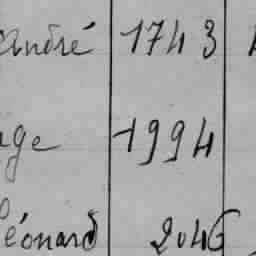 André 1743
age 1994
Léonard 2046